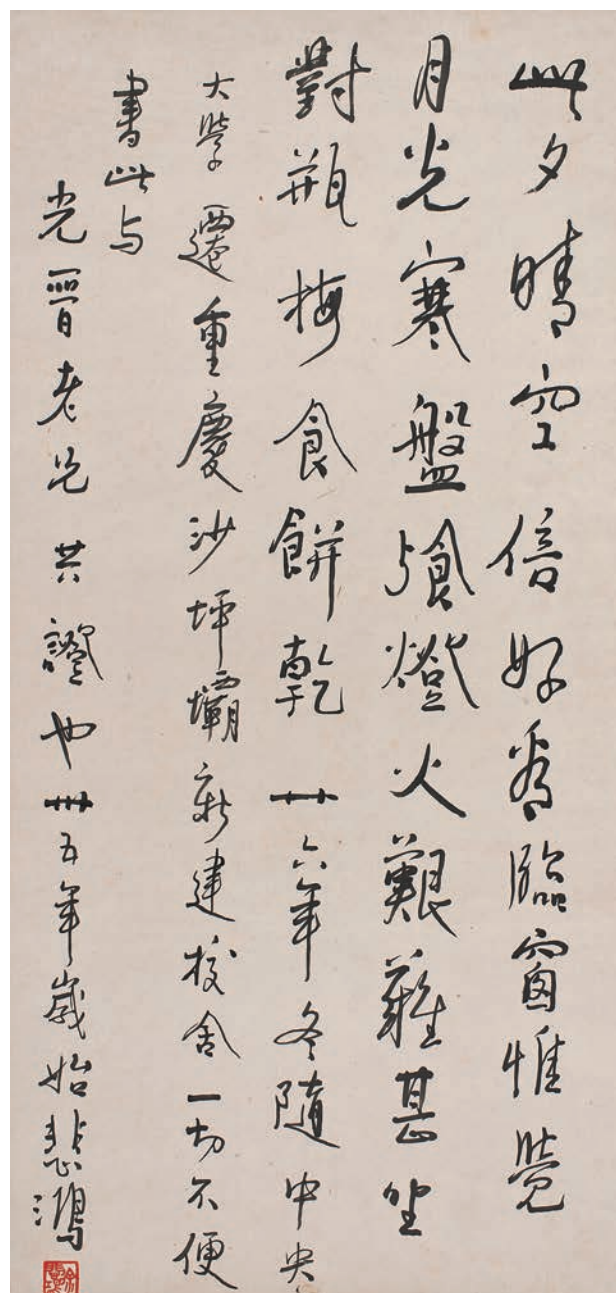 此夕晴空信好看臨窗惟覺
月光寒盤飧燈火艱難甚坐
對瓶梅食餅乾廿六年冬隨中央
大學遷重慶沙坪壩新建校舍一切不便
書此与
光晉老兄共證也卅五年歲始悲鴻